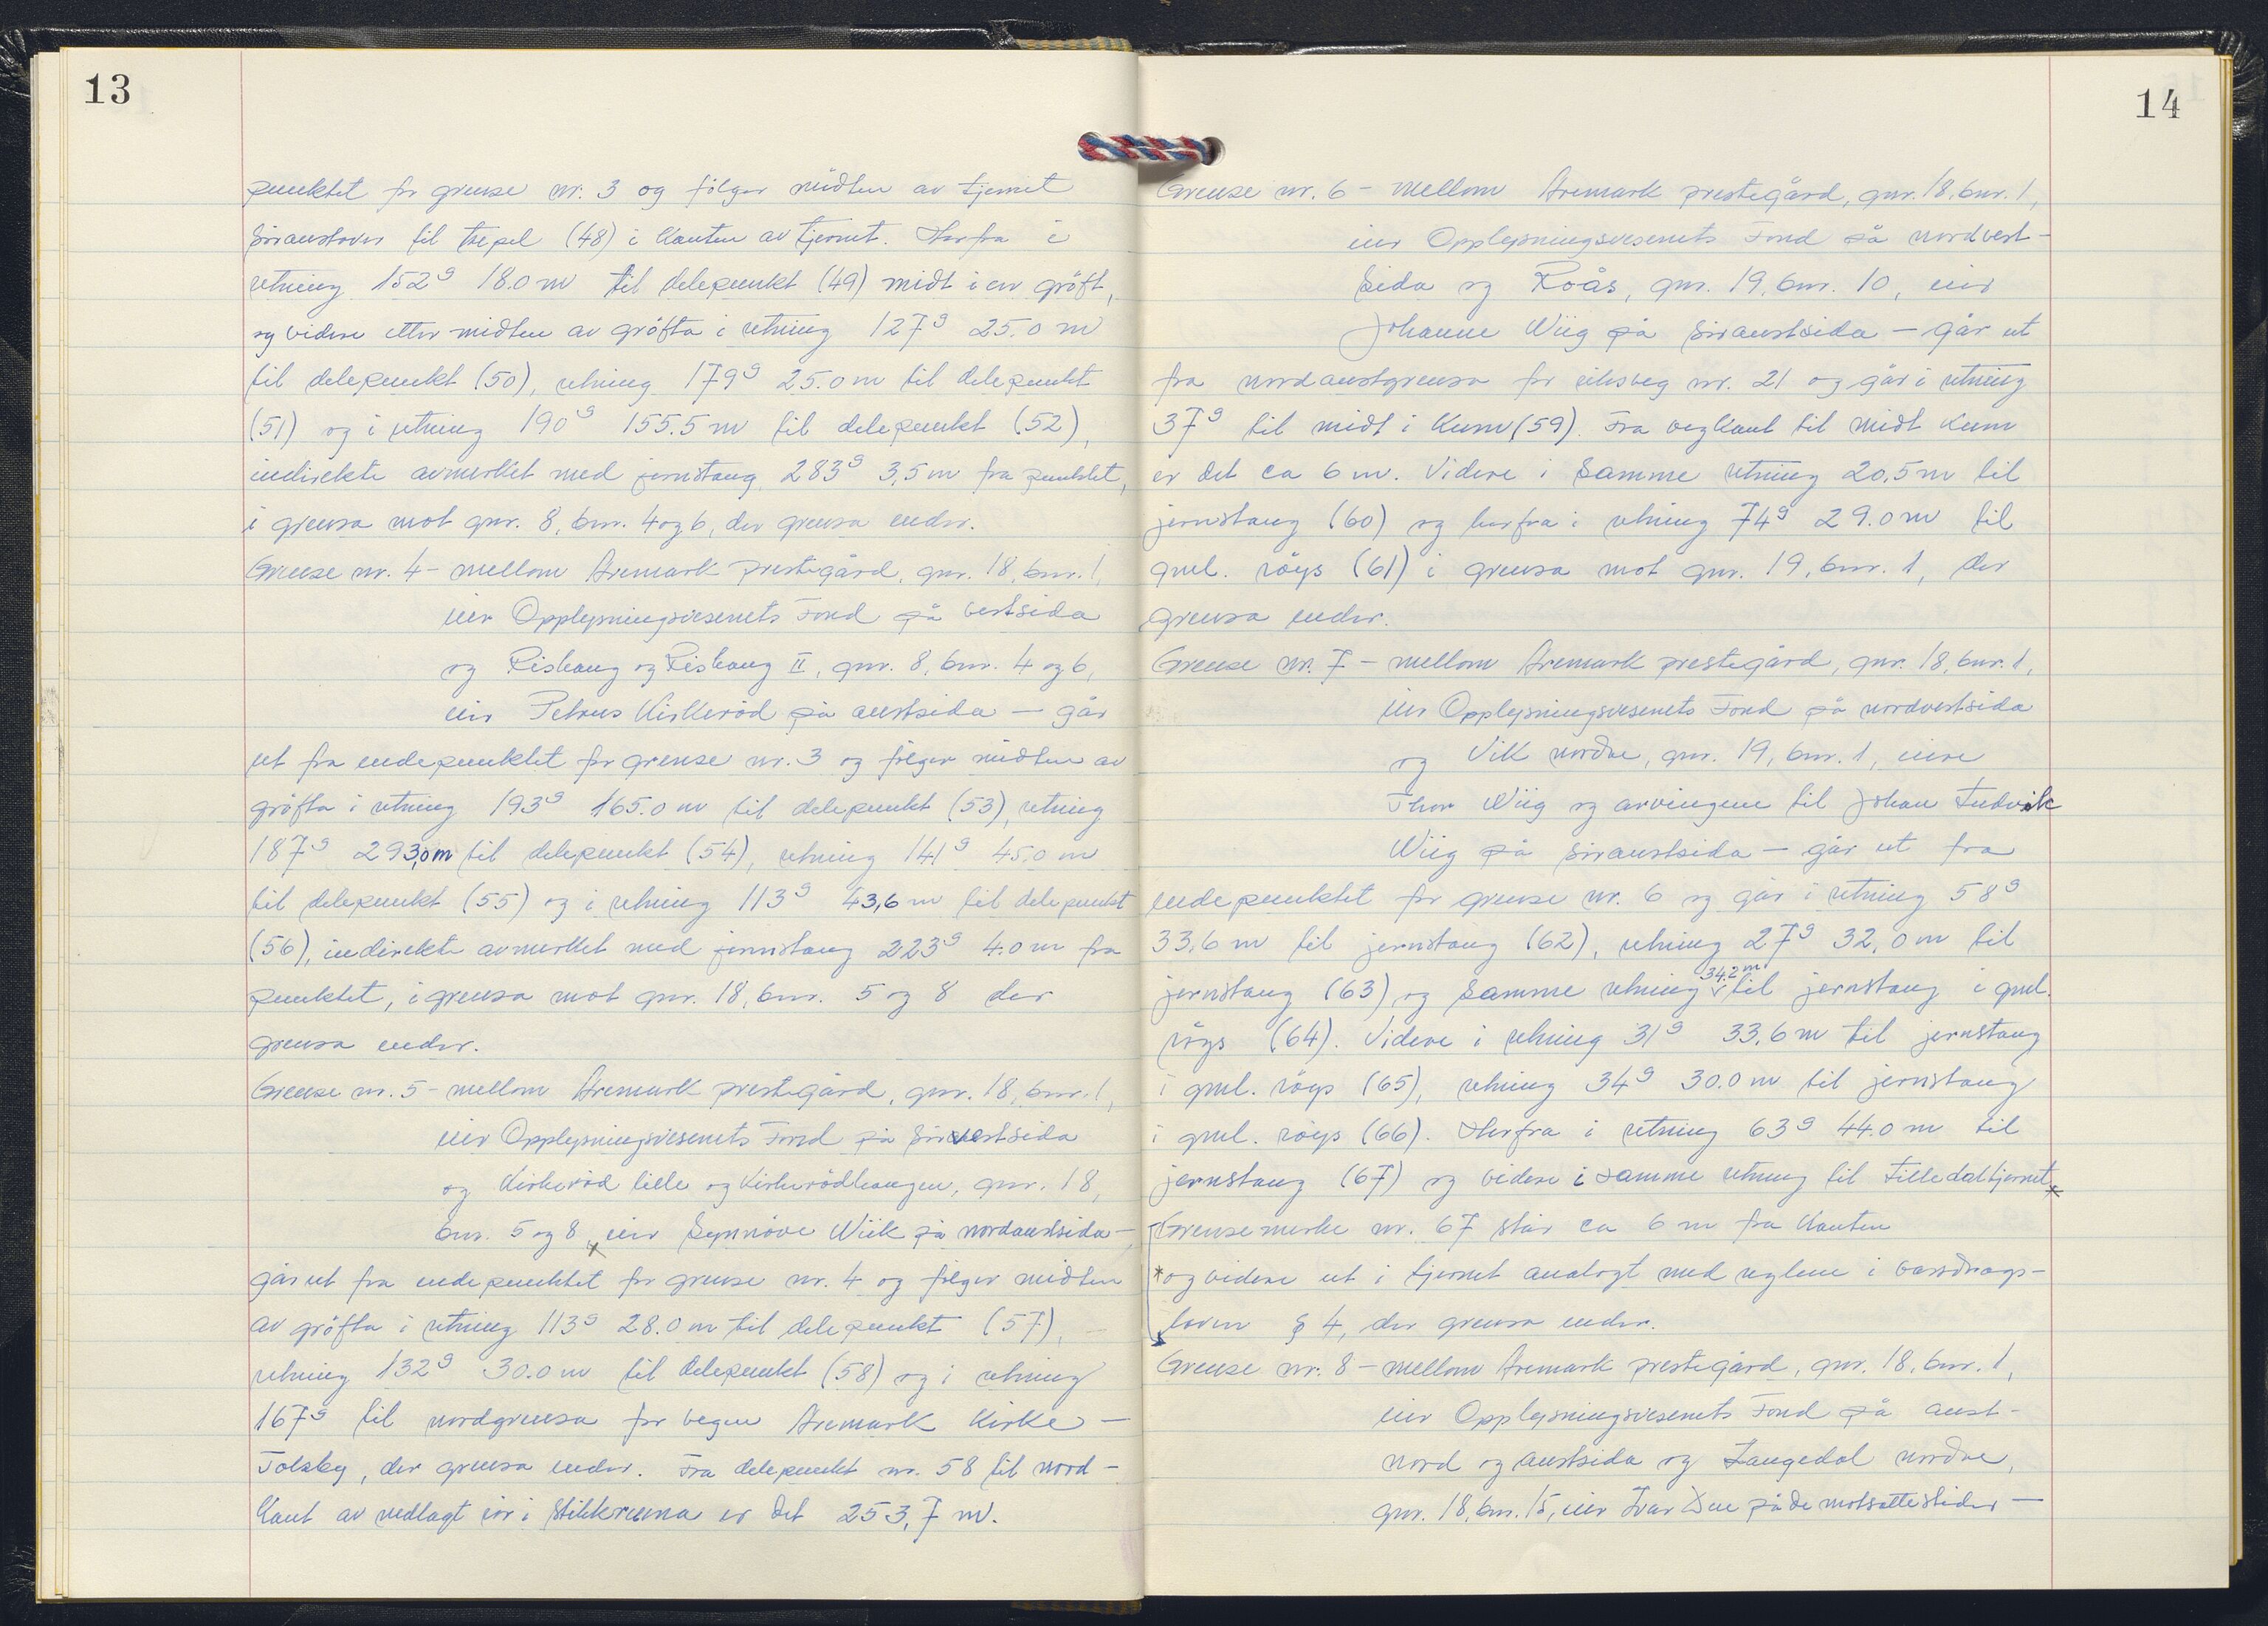 13
punktet for grense nr. 3 og følger midten av tjernet
søraustover til trepel (48) i kanten av tjernet. Herfra i
retning 152g 18.0 m til delepunkt (49) midt i en grøft,
og videre etter midten av grøfta i retning 127g 25.0 m
til delepunkt (50), retning 179g 25.0 m til delepunkt
(51) og i retning 190g 155.5 m til delepunkt (52),
indirekte avmerket med jernstang 283g 3,5 m fra punktet,
i grensa mot gnr. 8, bnr. 4 og 6, der grensa ender.
Grense nr. 4 - mellom Aremark prestegård, gnr. 18, bnr. 1,
eier Opplysningsvesenets Fond på vestsida
og Rishaug og Rishaug II, gnr. 8, bnr. 4 og 6,
eier Petrus Kirkerød på austsida — går
ut fra endepunktet for grense nr. 3 og følger midten av
grøfta i retning 193g 165.0 m til delepunkt (53), retning
187g 293,0 m til delepunkt (54), retning 141g 45,0 m
til delepunkt (55) og i retning 113g 43,6 m til delepunkt
(56), indirekte avmerket med jernstang 223g 4.0 m fra
punktet, i grensa mot gnr. 18, bnr. 5 og 8 der
grensa ender.
Grense nr. 5 - mellom Aremark prestegård, gnr. 18, bnr. 1,
eier Opplysningsvesenets Fond på sørvestsida
og Kirkerød lille og Kirkerødhaugen, gnr. 18,
bnr. 5 og 8, eier Synnøve Wiik på nordaustsida —
går ut fra endepunktet for grense nr. 4 og følger midten
av grøfta i retning 113g 28.0 m til delepunkt (57),
retning 132g 30.0 m til delepunkt (58) og i retning
167g til nordgrensa for vegen Aremark Kirke —
Tolsby, der grensa ender. Fra delepunkt nr. 58 til nord-
kant av nedlagt rør i stikkrenna er det 253,7 m.
14
Grense nr. 6 - mellom Aremark prestegård, gnr. 18, bnr. 1,
eier Opplysningsvesenets Fond på nordvest-
sida og Roås, gnr. 19, bnr. 10, eier
Johanne Wiig på søraustsida — går ut
fra nordaustgrensa for riksveg nr. 21 og går i retning
37g til midt i kum (59). Fra vegkant til midt kum
er det ca 6 m. Videre i samme retning 20,5 m til
jernstang (60) og herfra i retning 74g 29.0 m til
gml. røys (61) i grensa mot gnr. 19, bnr. 1, der
grensa ender.
Grense nr. 7 - mellom Aremark prestegård, gnr. 18, bnr. 1,
eier Opplysningsvesenets Fond på nordvestsida
og Vik nordre, gnr. 19, bnr. 1, eiere
Thor Wiig og arvingene til Johan Ludvik
Wiig på søraustsida — går ut fra
endepunktet for grense nr. 6 og går i retning 58g
33,6 m til jernstang (62), retning 27g 32,0 m til
jernstang (63) og samme retning 34.2 m til jernstang i gml.
røys (64). Videre i retning 31g 33,6 m til jernstang
i gml. røys (65), retning 34g 30.0 m til jernstang
i gml. røys (66). Herfra i retning 63g 44.0 m til
jernstang (67) og videre i samme retning til Lilledaltjernet*
Grensemerke nr. 67 står ca 6 m fra kanten
*og videre ut i tjernet analogt med reglene i vassdrags-
loven § 4, der grensa ender.
Grense nr. 8 - mellom Aremark prestegård, gnr. 18, bnr. 1,
eier Opplysningsvesenets Fond på aust-
nord og austsida og Langedal nordre,
gnr. 18, bnr. 15, eier Ivar på de motsatte sider —